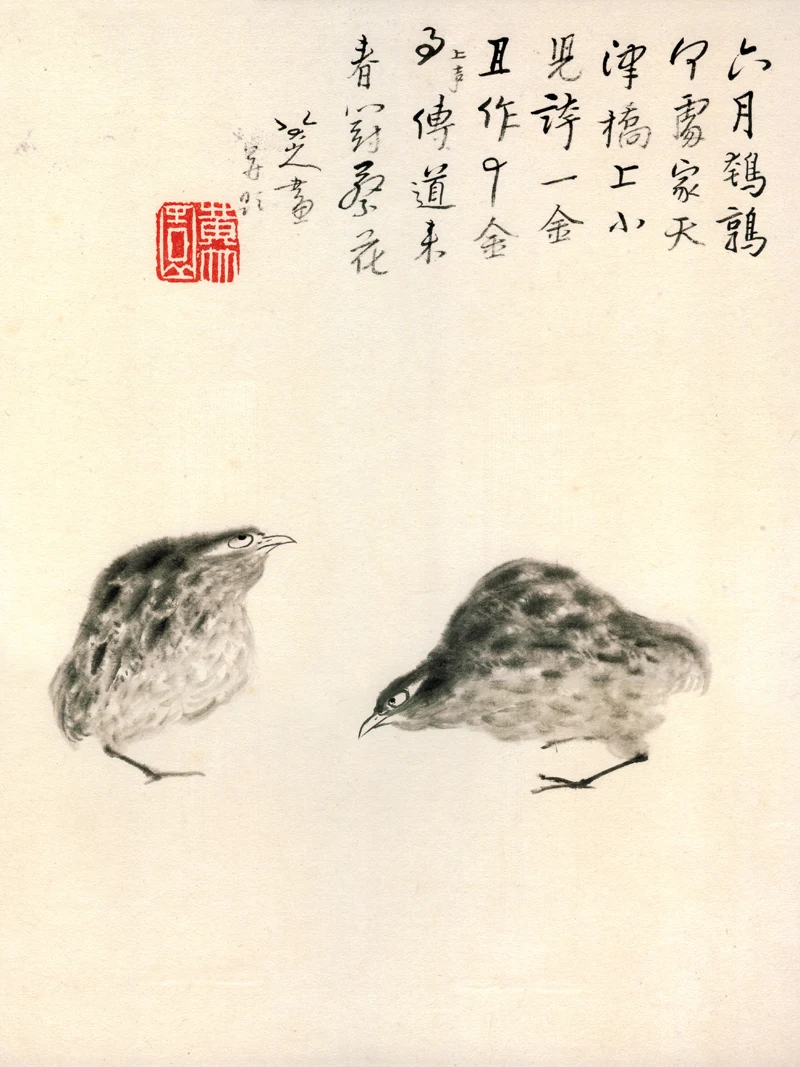 六月鵪鶉
何處家天
津橋上小
兒誇一金
且作十金
上声傳道来
春鬪蔡花
八大山人畫
并題